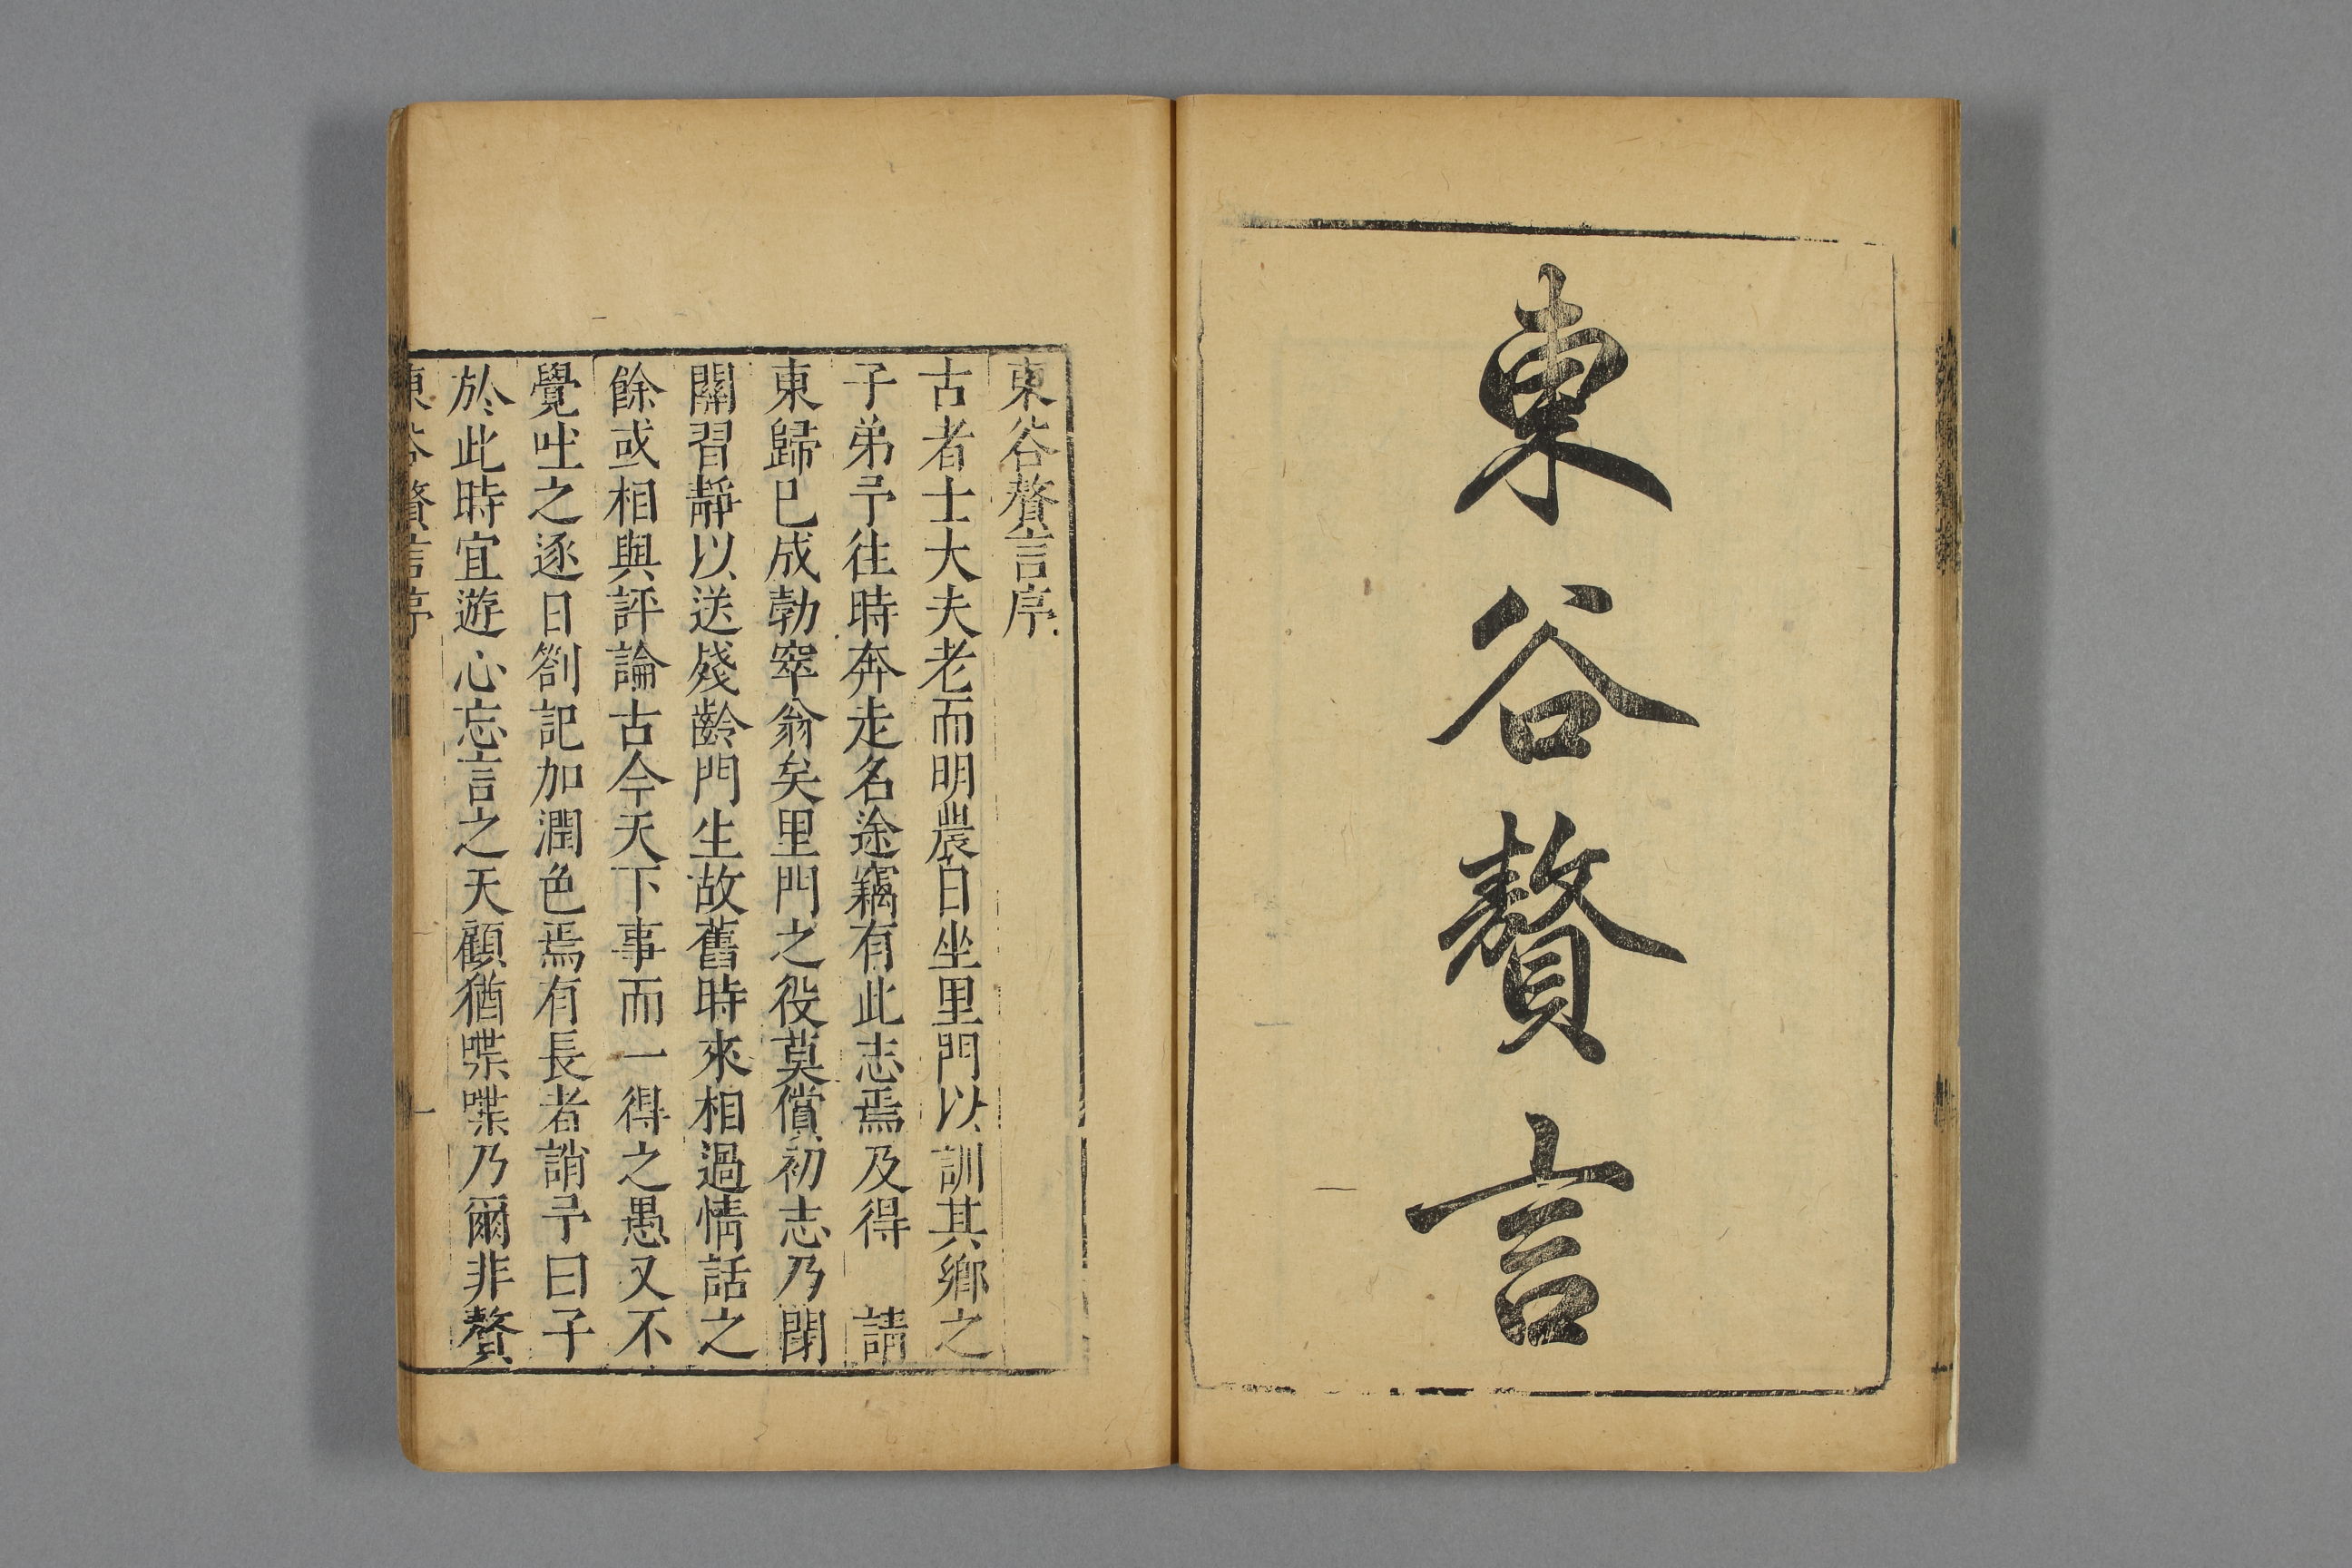 東谷贅言
東谷贅言序
古者士大夫老而明農日坐里門以訓其鄉之
子弟予往時奔走名途竊有此志焉及得　請
東歸已成勃窣翁矣里門之役莫償初志乃閉
關習靜以送殘齡門生故舊時來相過情話之
餘或相與評論古今天下事而一得之愚又不
覺吐之逐日劄記加潤色焉有長者誚予曰子
於此時宜遊心忘言之天顧猶喋喋乃爾非贅
東谷贅言序
一